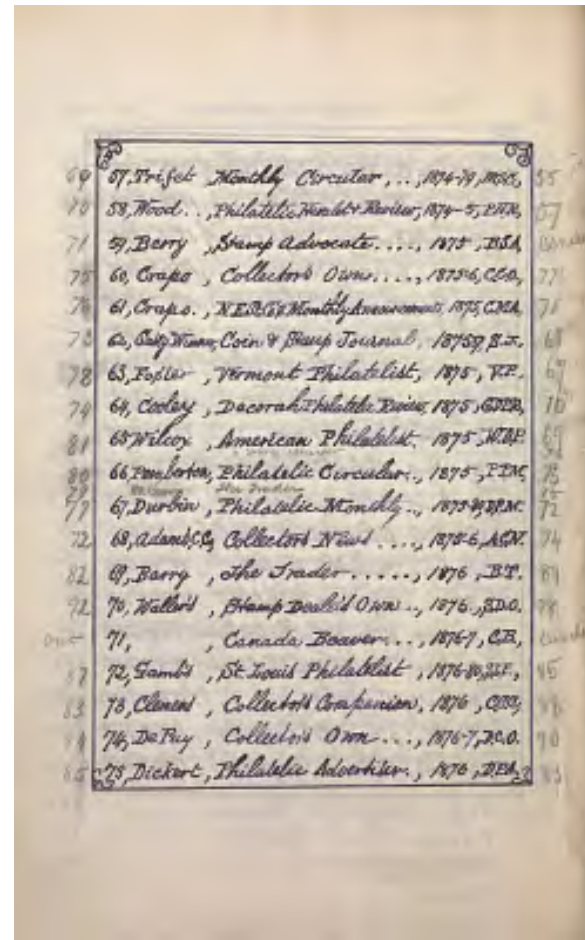 69 57, Trifet Monthly Circular, .., 1874-79, 55
70 58, Wood .., Philatelic Reviser, 1874-5, P.H.R, 57
71 59, Berry, Stamp Advocate ...., 1875, B.S.A,
75 60, Crapo, Collectors Own ...., 1875-6, C.C.O, 77
76 61, Crapo., Monthly Announcement, 1875, C.M.A,
73 62, Coin & Stamp Journal, 68
78 63, Foster, Vermont Philatelist, 1875, V.P. 67
74 64, Cooley, Decorah Philatelic Review, 1875,
81 65 Wilcox, American Philatelist. 1875, W.A.P. 69
80 66, Pemberton, Philatelic Circular ., 1875, 73
The Trader
77 67, Durbin, Philatelic Monthly .., D.P.M. 72
72 68, Adams, Collectors News ...., 1875-6, A.C.N. 74
82 69, Barry, The Trader ....., 1876, B.T. 81
92 70, Walters, Stamp Dealers Own .., 1876.,
71, , Canada Beaver ..., 1876-7, C.B,
87 72, Gambs, St. Louis Philatelist, 1876-80, 85
83 73, Clement, Collectors Companion, 1876,
74, De Puy, Collectors Own ..., 1876-7, D.C.O. 90
85 75, Dickert, Philatelic Advertiser., 1876, D.P.A. 83